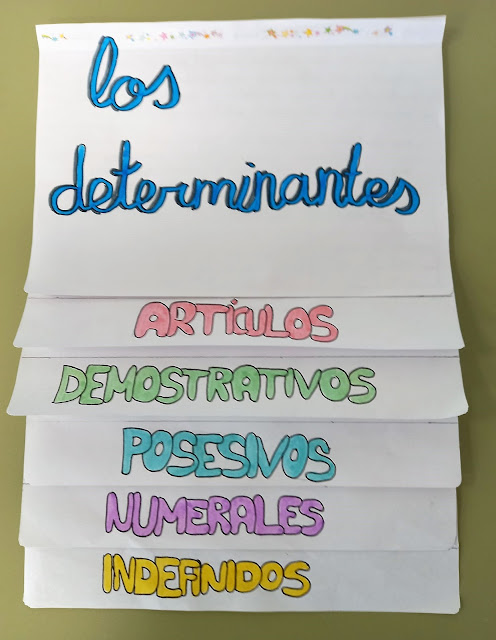 los
determinantes
ARTÍCULOS
DEMOSTRATIVOS
POSESIVOS
NUMERALES
INDEFINIDOS